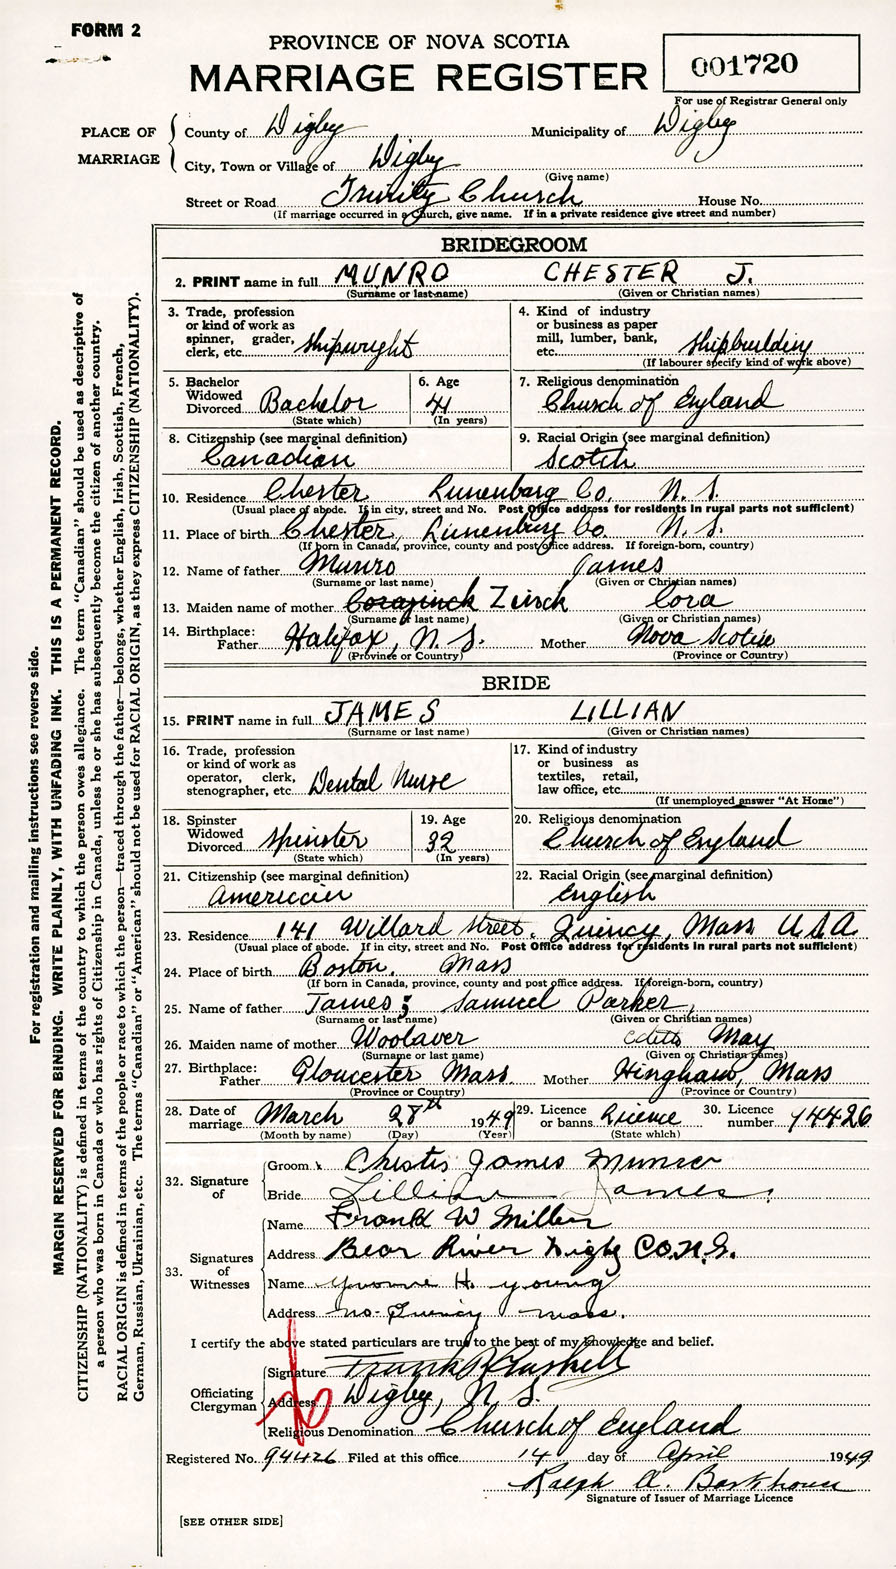 FORM 2
PROVINCE OF NOVA SCOTIA
MARRIAGE REGISTER
001720
For use of Registrar General only
PLACE OF MARRIAGE
County of Digby Municipality of Digby
City, Town or Village of Digby
(Give name)
Street or Road Trinity Church House No.
(If marriage occurred in a Church, give name. If in a private residence give street and number)
BRIDEGROOM
2. PRINT name in full MUNRO CHESTER J.
(Surname or last name) (Given or Christian names)
3. Trade, profession or kind of work as spinner, grader, clerk, etc. Shipwright
4. Kind of industry or business as paper mill, lumber, bank, etc. Shipbuilding
(If labourer specify kind of work above)
5. Bachelor Widowed Divorced Bachelor (State which)
6. Age 41 (In years)
7. Religious denomination Church of England
8. Citizenship (see marginal definition) Canadian
9. Racial Origin (see marginal definition) Scotch
10. Residence Chester Lunenburg Co. N. S.
(Usual place of abode. If in city, street and No. Post Office address for residents in rural parts not sufficient)
11. Place of birth Chester, Lunenburg Co. N. S.
(If born in Canada, province, county and post office address. If foreign-born, country)
12. Name of father Munro James
(Surname or last name) (Given or Christian names)
13. Maiden name of mother Zinck Cora
(Surname or last name) (Given or Christian names)
14. Birthplace: Father Halifax, N. S. Mother Nova Scotia
(Province or Country) (Province or Country)
BRIDE
15. PRINT name in full JAMES LILLIAN
(Surname or last name) (Given or Christian names)
16. Trade, profession or kind of work as operator, clerk, stenographer, etc. Dental Nurse
17. Kind of industry or business as textiles, retail, law office, etc.
(If unemployed answer "At Home")
18. Spinster Widowed Divorced Spinster (State which)
19. Age 32 (In years)
20. Religious denomination Church of England
21. Citizenship (see marginal definition) American
22. Racial Origin (see marginal definition) English
23. Residence 141 Willard Street, Quincy, Mass U.S.A
(Usual place of abode. If in city, street and No. Post Office address for residents in rural parts not sufficient)
24. Place of birth Boston, Mass
(If born in Canada, province, county and post office address. If foreign-born, country)
25. Name of father James; Samuel Parker,
(Surname or last name) (Given or Christian names)
26. Maiden name of mother Woolaver Edith May
(Surname or last name) (Given or Christian names)
27. Birthplace: Father Gloucester Mass. Mother Hingham, Mass
(Province or Country) (Province or Country)
28. Date of marriage March 28th 1949
(Month by name) (Day) (Year)
29. Licence or banns Licence (State which)
30. Licence number 94426
32. Signature of
Groom x Chester James Munro
Bride Lillian James.
33. Signatures of Witnesses
Name Frank W Miller
Address Bear River Digby CO. N.S.
Name Yvonne H. Young
Address No. Quincy Mass.
I certify the above stated particulars are true to the best of my knowledge and belief.
Officiating Clergyman
Signature Frank
Address Digby, N. S.
Religious Denomination Church of England
Registered No. 94426 Filed at this office 14 day of April 1949
Ralph A. Barkhouse
Signature of Issuer of Marriage Licence
[SEE OTHER SIDE]
For registration and mailing instructions see reverse side.
MARGIN RESERVED FOR BINDING. WRITE PLAINLY, WITH UNFADING INK. THIS IS A PERMANENT RECORD.
CITIZENSHIP (NATIONALITY) is defined in terms of the country to which the person owes allegiance. The term "Canadian" should be used as descriptive of
a person who was born in Canada or who has rights of Citizenship in Canada, unless he or she has subsequently become the citizen of another country.
RACIAL ORIGIN is defined in terms of the people or race to which the person—traced through the father—belongs, whether English, Irish, Scottish, French,
German, Russian, Ukrainian, etc. The terms "Canadian" or "American" should not be used for RACIAL ORIGIN, as they express CITIZENSHIP (NATIONALITY).